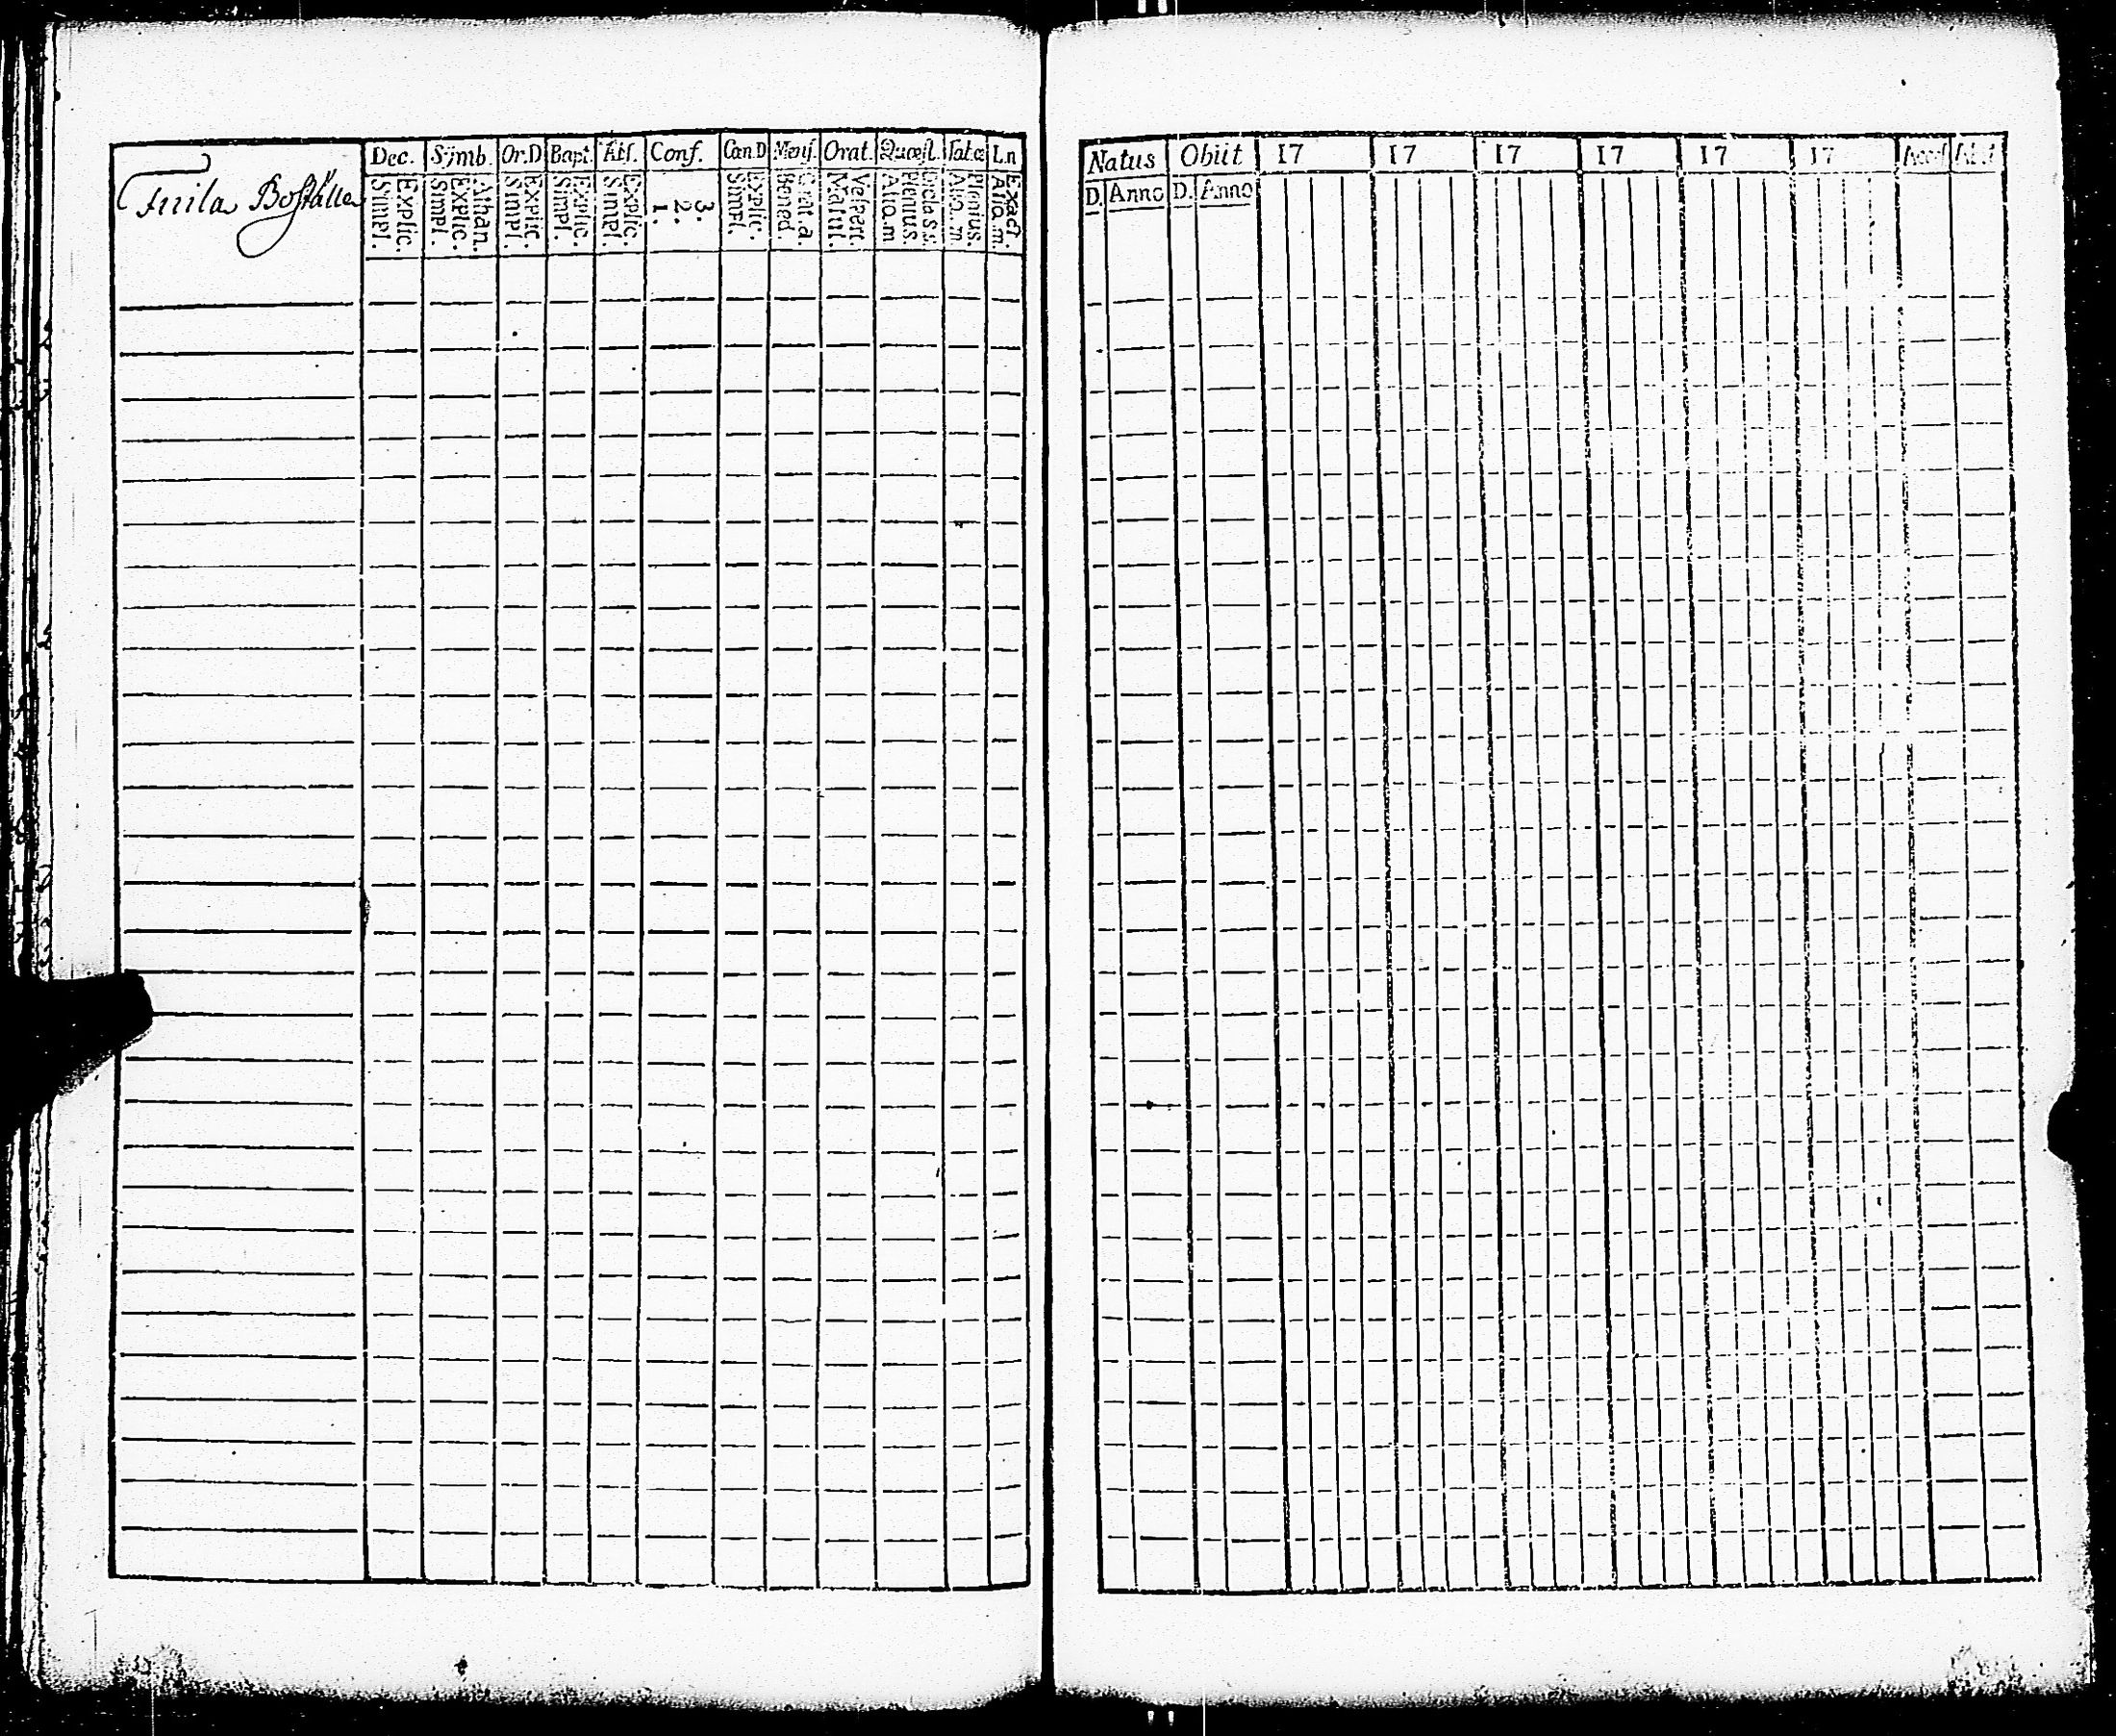 Fuila Boställe
Dec. Sÿmb. Or.D Bapt. Abs. Conf. Cœn.D Mens. Orat. Quæst. Tabœ Ln
Simpl. Explic. Simpl. Explic. Athan. Simpl. Explic. Simpl. Explic. Simpl. Explic. 1. 2. 3. Simpl. Explic. Bened. Grat.a. Matut. Vespert. Aliq.m Plenius. Aliq.m. Plenius. Aliq.m. Exact.
Natus Obiit 17 17 17 17 17 17
D. Anno D. Anno